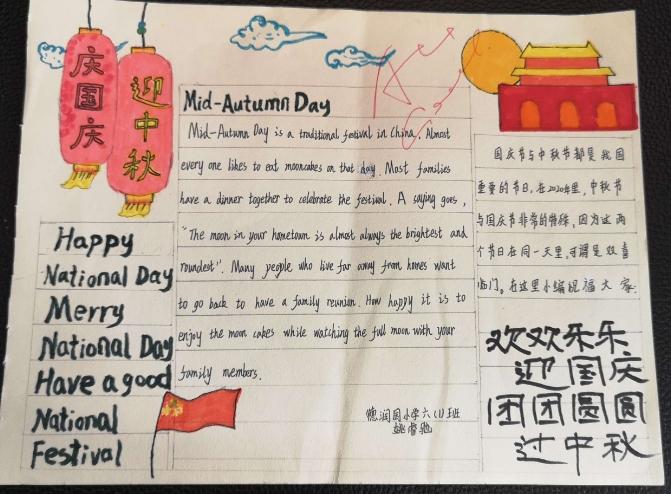 庆国庆
迎中秋
Happy
National Day
Merry
National Day
Have a good
National
Festival
Mid-Autumn Day
Mid-Autumn Day is a traditional festival in China. Almost
every one likes to eat mooncakes on that day. Most families
have a dinner together to celebrate the festival. A saying goes,
"The moon in your hometown is almost always the brightest and
roundest". Many people who live far away from homes want
to go back to have a family reunion. How happy it is to
enjoy the moon cakes while watching the full moon with your
family members.
德润园小学六(1)班
国庆节与中秋节都是我国
重要的节日。在2020年里,中秋节
与国庆节非常的特殊,因为这两
个节日在同一天里,可谓是双喜
临门。在这里小编祝福大家:
欢欢乐乐
迎国庆
团团圆圆
过中秋